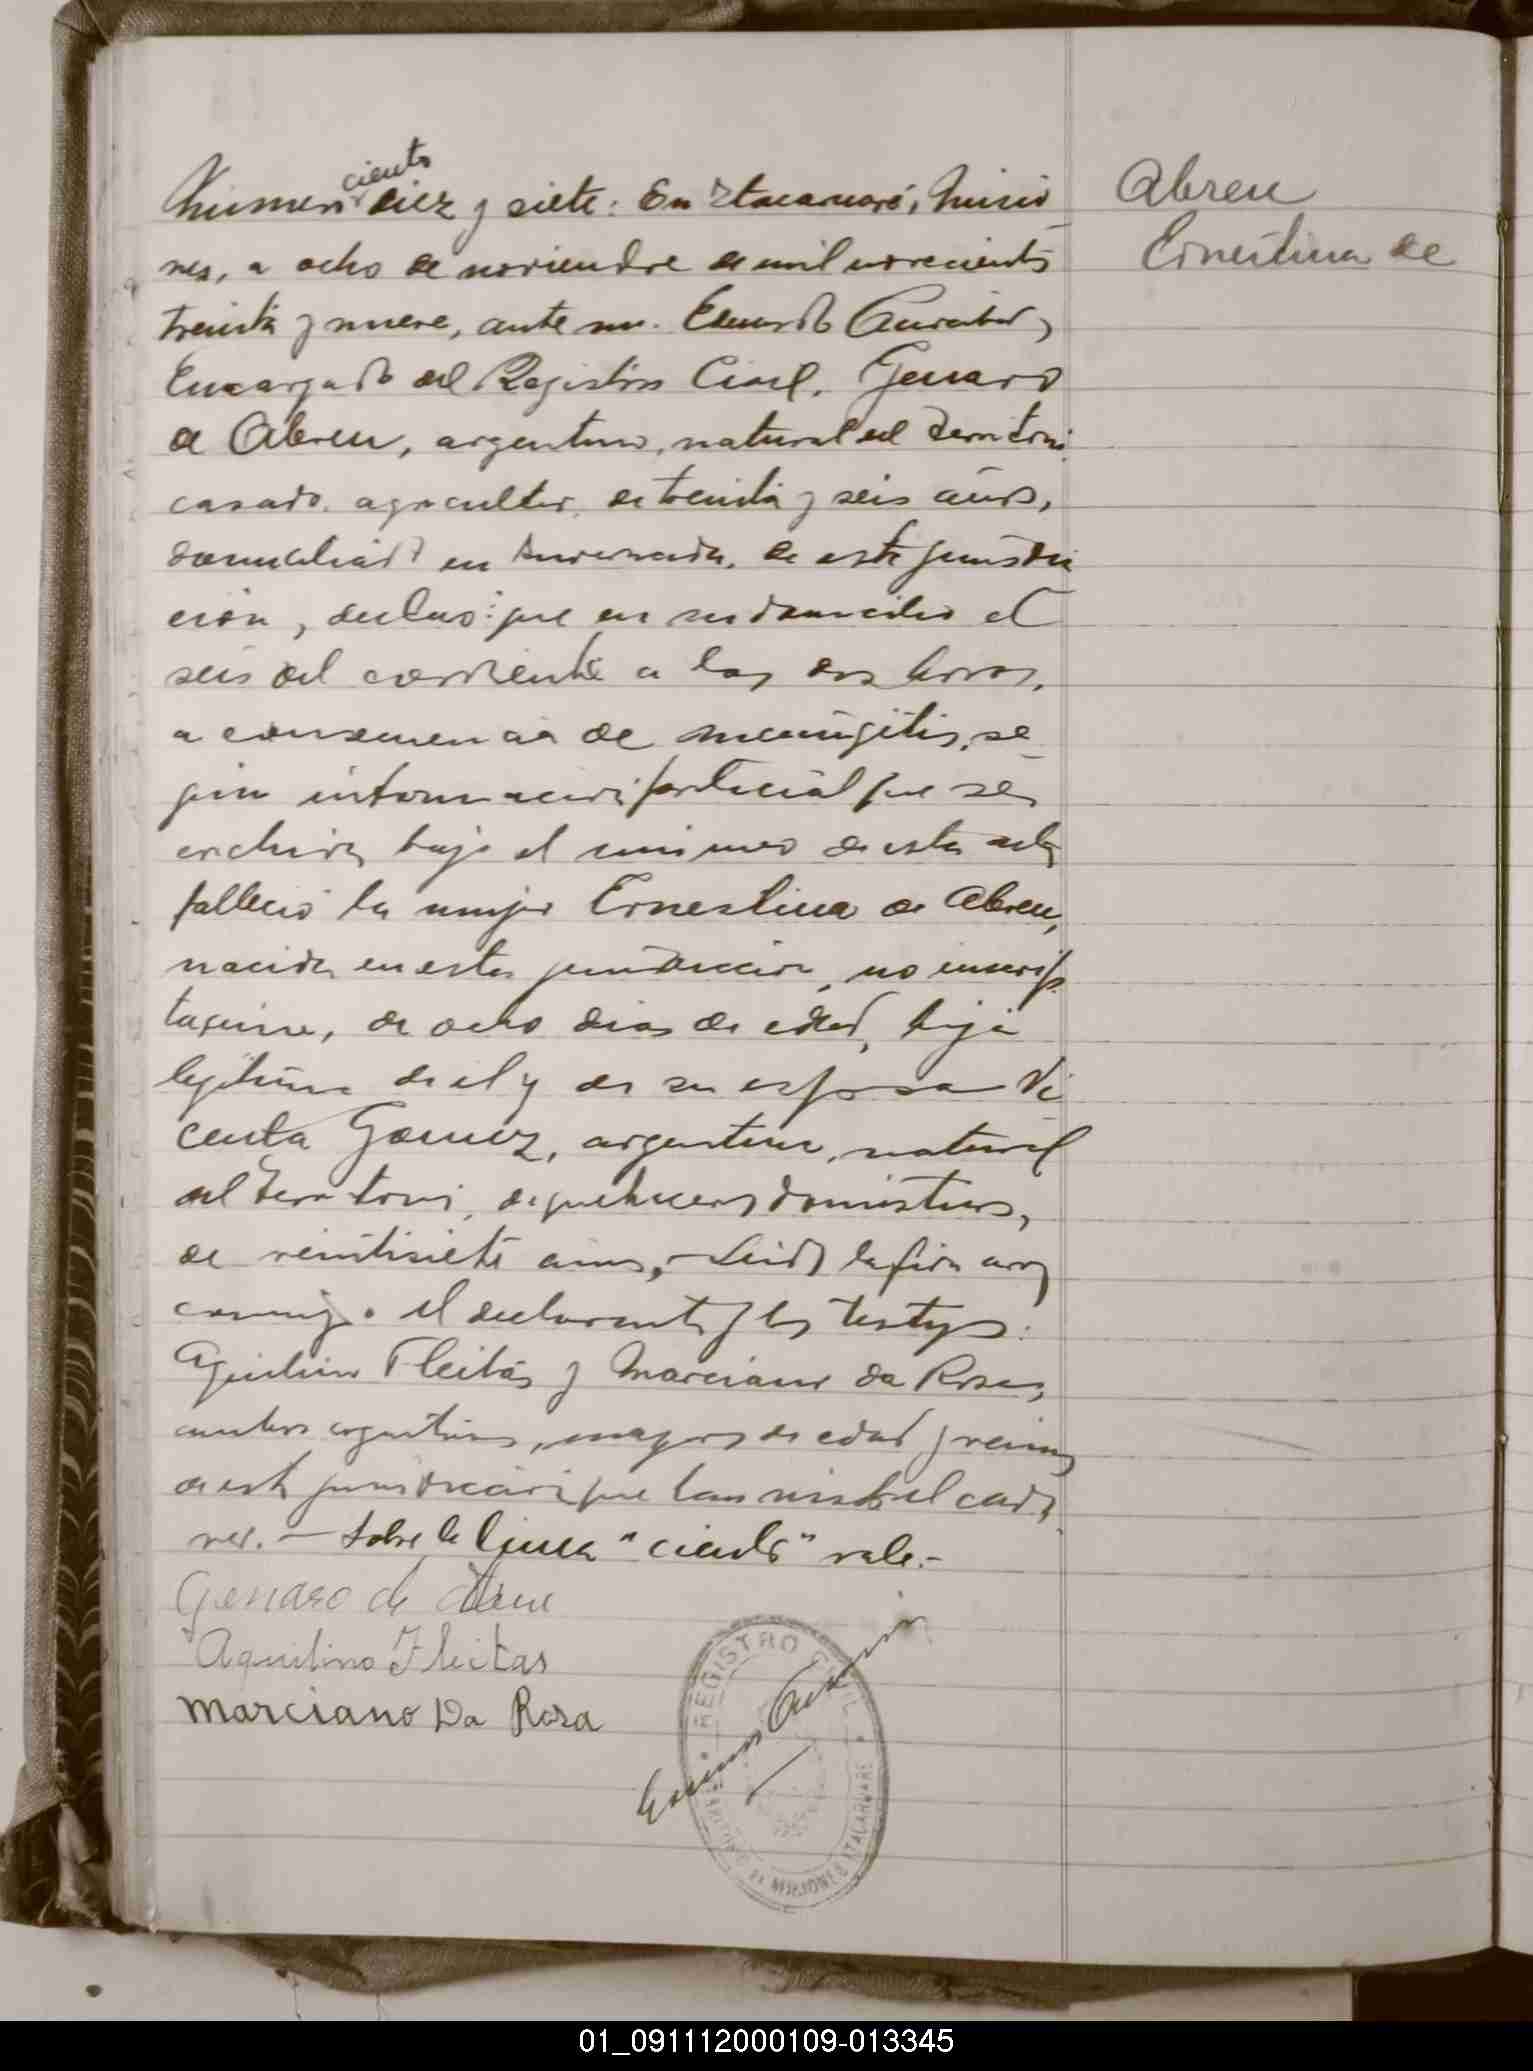 ciento
Número diez y siete: En Itacaruaré, Misio
nes, a ocho de noviembre de mil novecientos
treinta y nueve, ante mi. Eduardo
Encargado del Registro Civil. Genaro
de Abreu, argentino, natural del Territorio
casado. agricultor, de treinta y seis años,
domiciliado en Invernada, de esta jurisdic
ción, declaró: que en su domicilio el
seis del corriente a las dos horas,
a consecuencia de meningitis, se
gún información particial que se
archiva bajo el número de esta acta
falleció la mujer Ernestina de Abreu,
nacida en esta jurisdicción, no inscrip
ta, de ocho dias de edad, hija
legítima de el y de su esposa Vi
centa Gomez, argentina, natural
del Territorio, de quehaceres domésticos,
de veintisiete años,- Leida la firman
conmigo el declarante y los testigos:
Aquilino Fleitas y Marciano da Rosa,
ambos argentinos, mayores de edad y vecinos
de esta jurisdicción que han visto el cadá
ver. — Sobre la linea "ciento" vale.-
Genaro de Abreu
Aquilino Fleitas
Marciano Da Rosa
REGISTRO CIVIL
DE MISIONES ITACARUARE
Abreu
Ernestina de
01_091112000109-013345